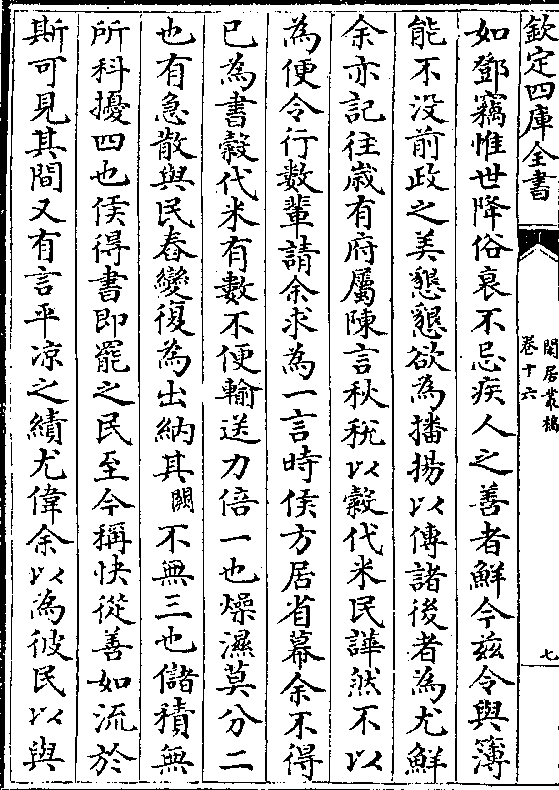 欽定四庫全書
閒居叢稿
卷十六
七
如鄧竊惟世降俗衰不忌疾人之善者鮮今兹令與簿
能不没前政之美懇懇欲為播揚以傳諸後者為尤鮮
余亦記徃嵗有府屬陳言秋稅以穀代米民譁然不以
為便令行數輩請余求為一言時侯方居省幕余不得
已為書穀代米有數不便輸送力倍一也燥濕莫分二
也有急散與民舂變復為出納其闕不無三也儲積無
所科擾四也侯得書即罷之民至今稱快從善如流於
斯可見其間又有言平凉之績尤偉余以為彼民以與